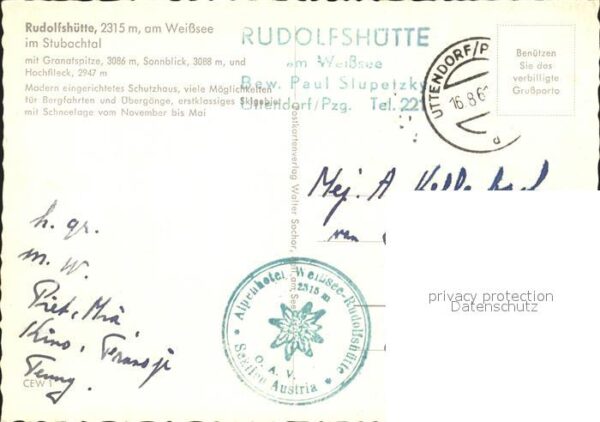 Rudolfshütte, 2315 m, am Weißsee
im Stubachtal
mit Granatspitze, 3086 m, Sonnblick, 3088 m, und
Hochfileck, 2947 m
Modern eingerichtetes Schutzhaus, viele Möglichkeiten
für Bergfahrten und Übergänge, erstklassiges Skigebiet
mit Schneelage vom November bis Mai
RUDOLFSHÜTTE
am Weißsee
Bew. Paul Slupetzky
Uttendorf/Pzg. Tel. 221
UTTENDORF/P
16.8.6
d
Benützen
Sie das
verbilligte
Grußporto
Postkartenverlag Walter Sochor, Zell am See
Mej. A
van
h. gr.
m. W.
Piet, Mia
Kino, Fransje
Tenny.
Alpenhotel Weißsee-Rudolfshütte
2315 m
O. A. V.
Sektion Austria
CEW 1
privacy protection
Datenschutz